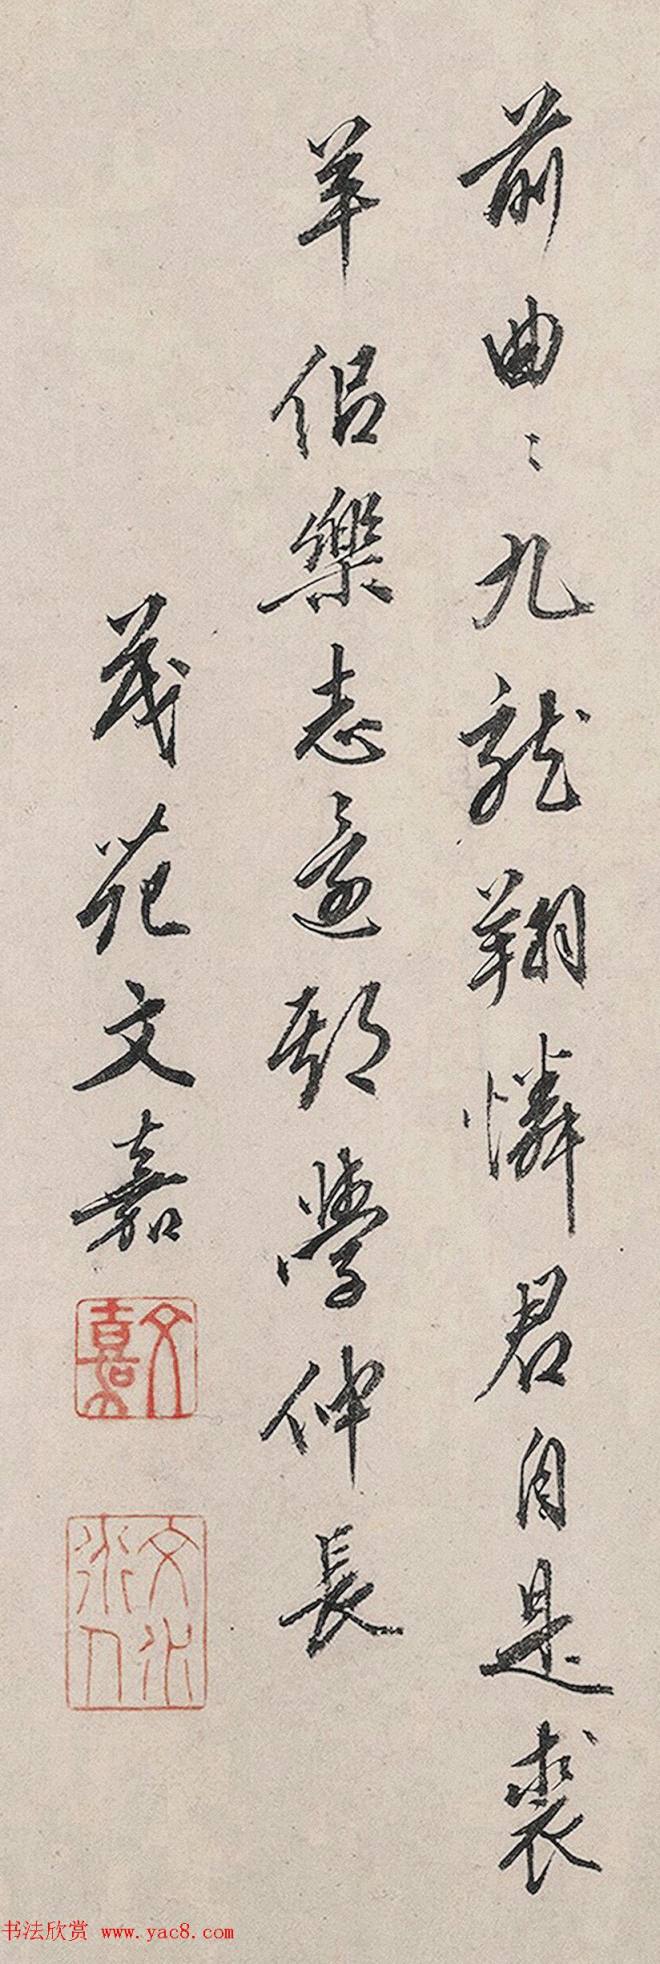 前曲〻九龍翔憐君自是裘
羊侣樂志還期學仲長
茂苑文嘉
文嘉
文水
書法欣赏 www.yac8.com